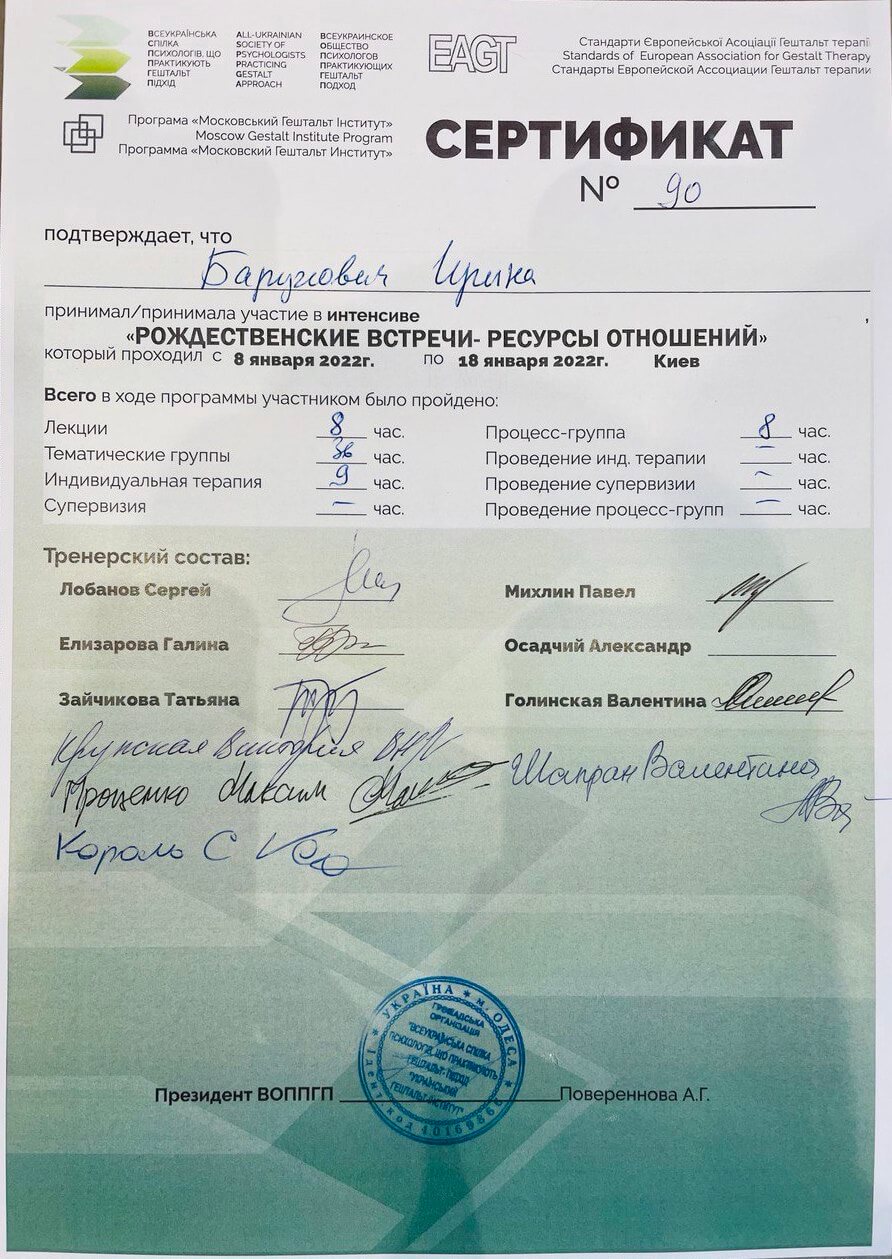 ВСЕУКРАЇНСЬКА
СПІЛКА
ПСИХОЛОГІВ, ЩО
ПРАКТИКУЮТЬ
ГЕШТАЛЬТ
ПІДХІД
ALL-UKRAINIAN
SOCIETY OF
PSYCHOLOGISTS
PRACTICING
GESTALT
APPROACH
ВСЕУКРАИНСКОЕ
ОБЩЕСТВО
ПСИХОЛОГОВ
ПРАКТИКУЮЩИХ
ГЕШТАЛЬТ
ПОДХОД
EAGT
Стандарти Європейської Асоціації Гештальт терапії
Standards of European Association for Gestalt Therapy
Стандарты Европейской Ассоциации Гештальт терапии
Програма «Московський Гештальт Інститут»
Moscow Gestalt Institute Program
Программа «Московский Гештальт Институт»
СЕРТИФИКАТ
№ 90
подтверждает, что
Ирина
принимал/принимала участие в интенсиве ,
«РОЖДЕСТВЕНСКИЕ ВСТРЕЧИ- РЕСУРСЫ ОТНОШЕНИЙ»
который проходил с 8 января 2022г. по 18 января 2022г. Киев
Всего в ходе программы участником было пройдено:
Лекции 8 час. Процесс-группа 8 час.
Тематические группы 36 час. Проведение инд. терапии – час.
Индивидуальная терапия 9 час. Проведение супервизии – час.
Супервизия – час. Проведение процесс-групп – час.
Тренерский состав:
Лобанов Сергей Михлин Павел
Елизарова Галина Осадчий Александр
Зайчикова Татьяна Голинская Валентина
Крупская Виктория
Шапран Валентина
Проценко Максим
Король С
УКРАЇНА * м. ОДЕСА
Ідент. код 40169866
ГРОМАДСЬКА
ОРГАНІЗАЦІЯ
"ВСЕУКРАЇНСЬКА СПІЛКА
ПСИХОЛОГІВ, ЩО ПРАКТИКУЮТЬ
ГЕШТАЛЬТ-ПІДХІД
"УКРАЇНСЬКИЙ
ГЕШТАЛЬТ-ІНСТИТУТ"
Президент ВОППГП Повереннова А.Г.